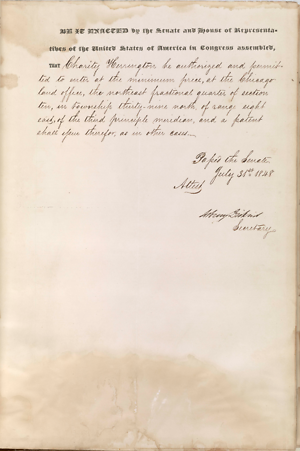 BE IT ENACTED by the Senate and House of Representa-
tives of the United States of America in Congress assembled,
THAT Charity Herrington be authorized and permit-
ted to enter at the minimum price, at the Chicago
land office, the northeast fractional quarter of section
ten, in township thirty-nine north, of range eight
east, of the third principle meridian, and a patent
shall issue therefor, as in other cases.
Pass'd the Senate
July 31st 1848
Attest,
Secretary